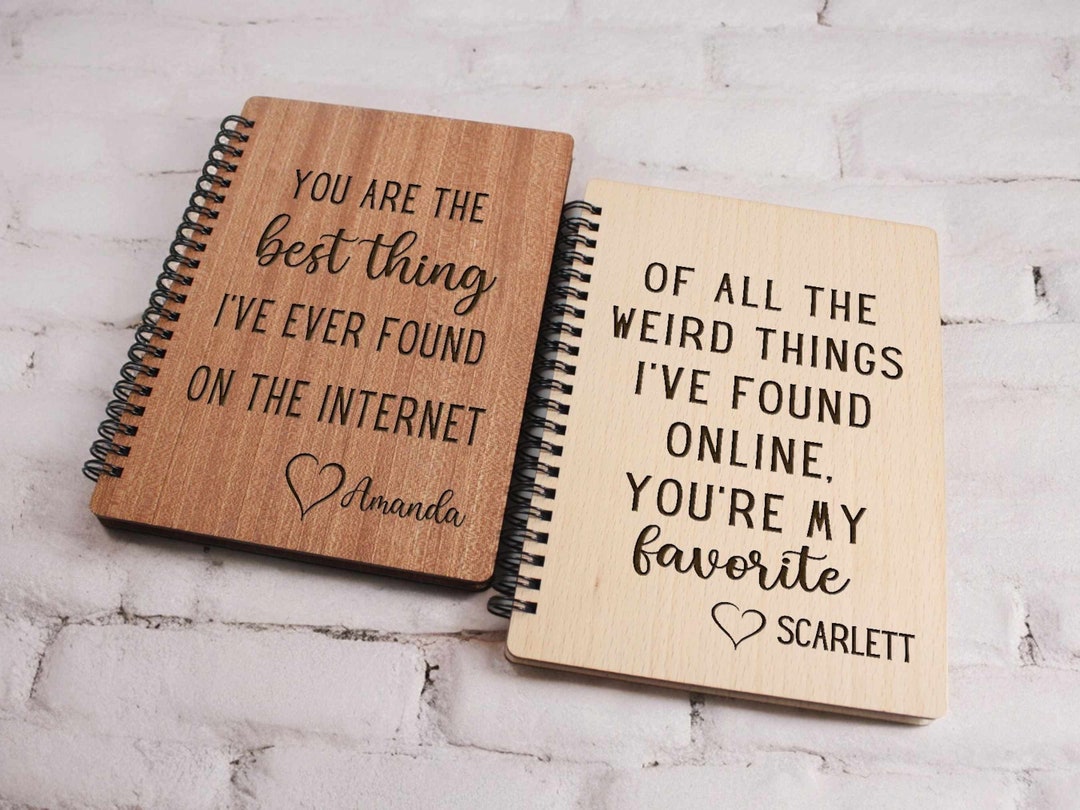 YOU ARE THE
best thing
I'VE EVER FOUND
ON THE INTERNET
Amanda
OF ALL THE
WEIRD THINGS
I'VE FOUND
ONLINE,
YOU'RE MY
favorite
SCARLETT